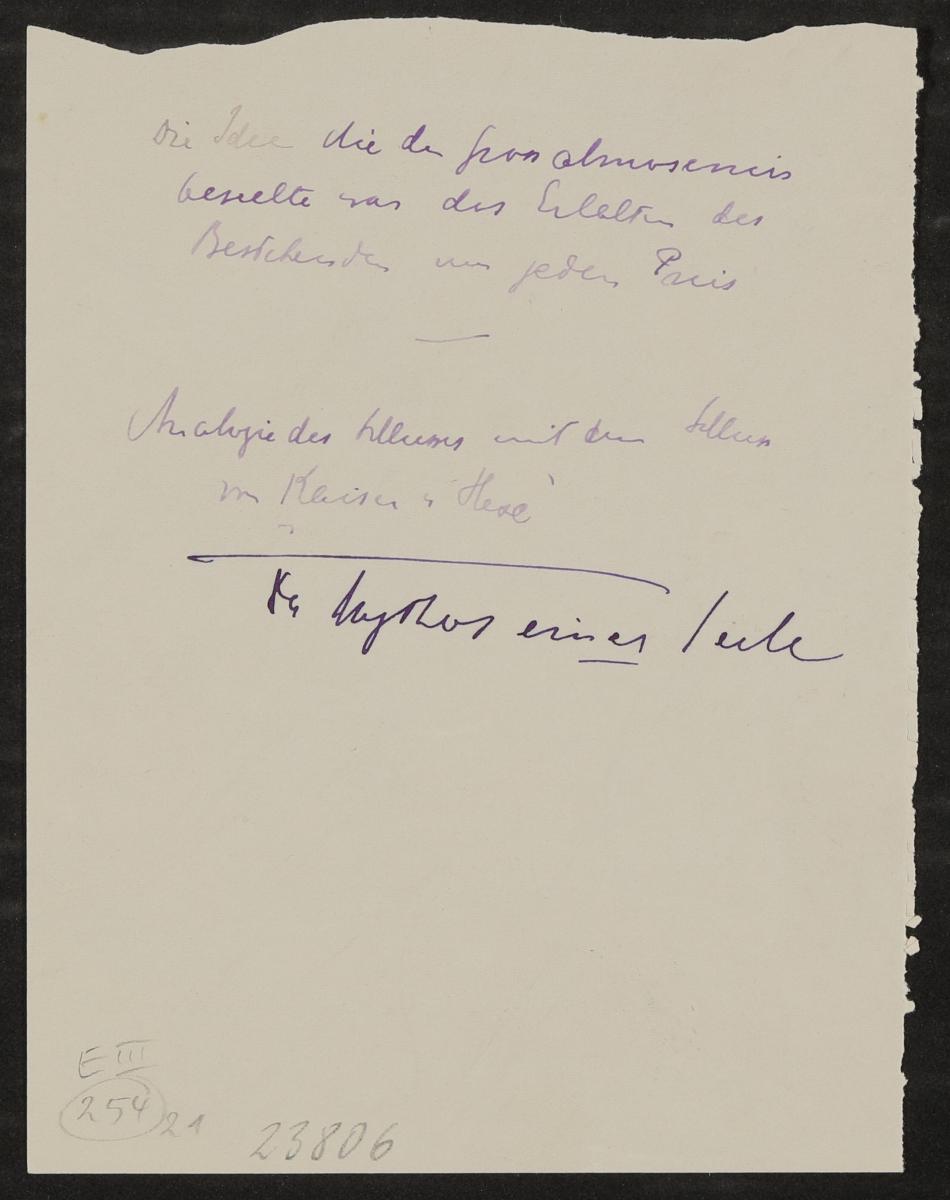 Die Idee die den Grossalmoseniers
beseelte war das Erhalten des
Bestehenden um jeden Preis
Analogie des Schlusses mit dem Schluss
von Kaiser u Hexe
Der Mythos einer Seele
E III
254
21
23806